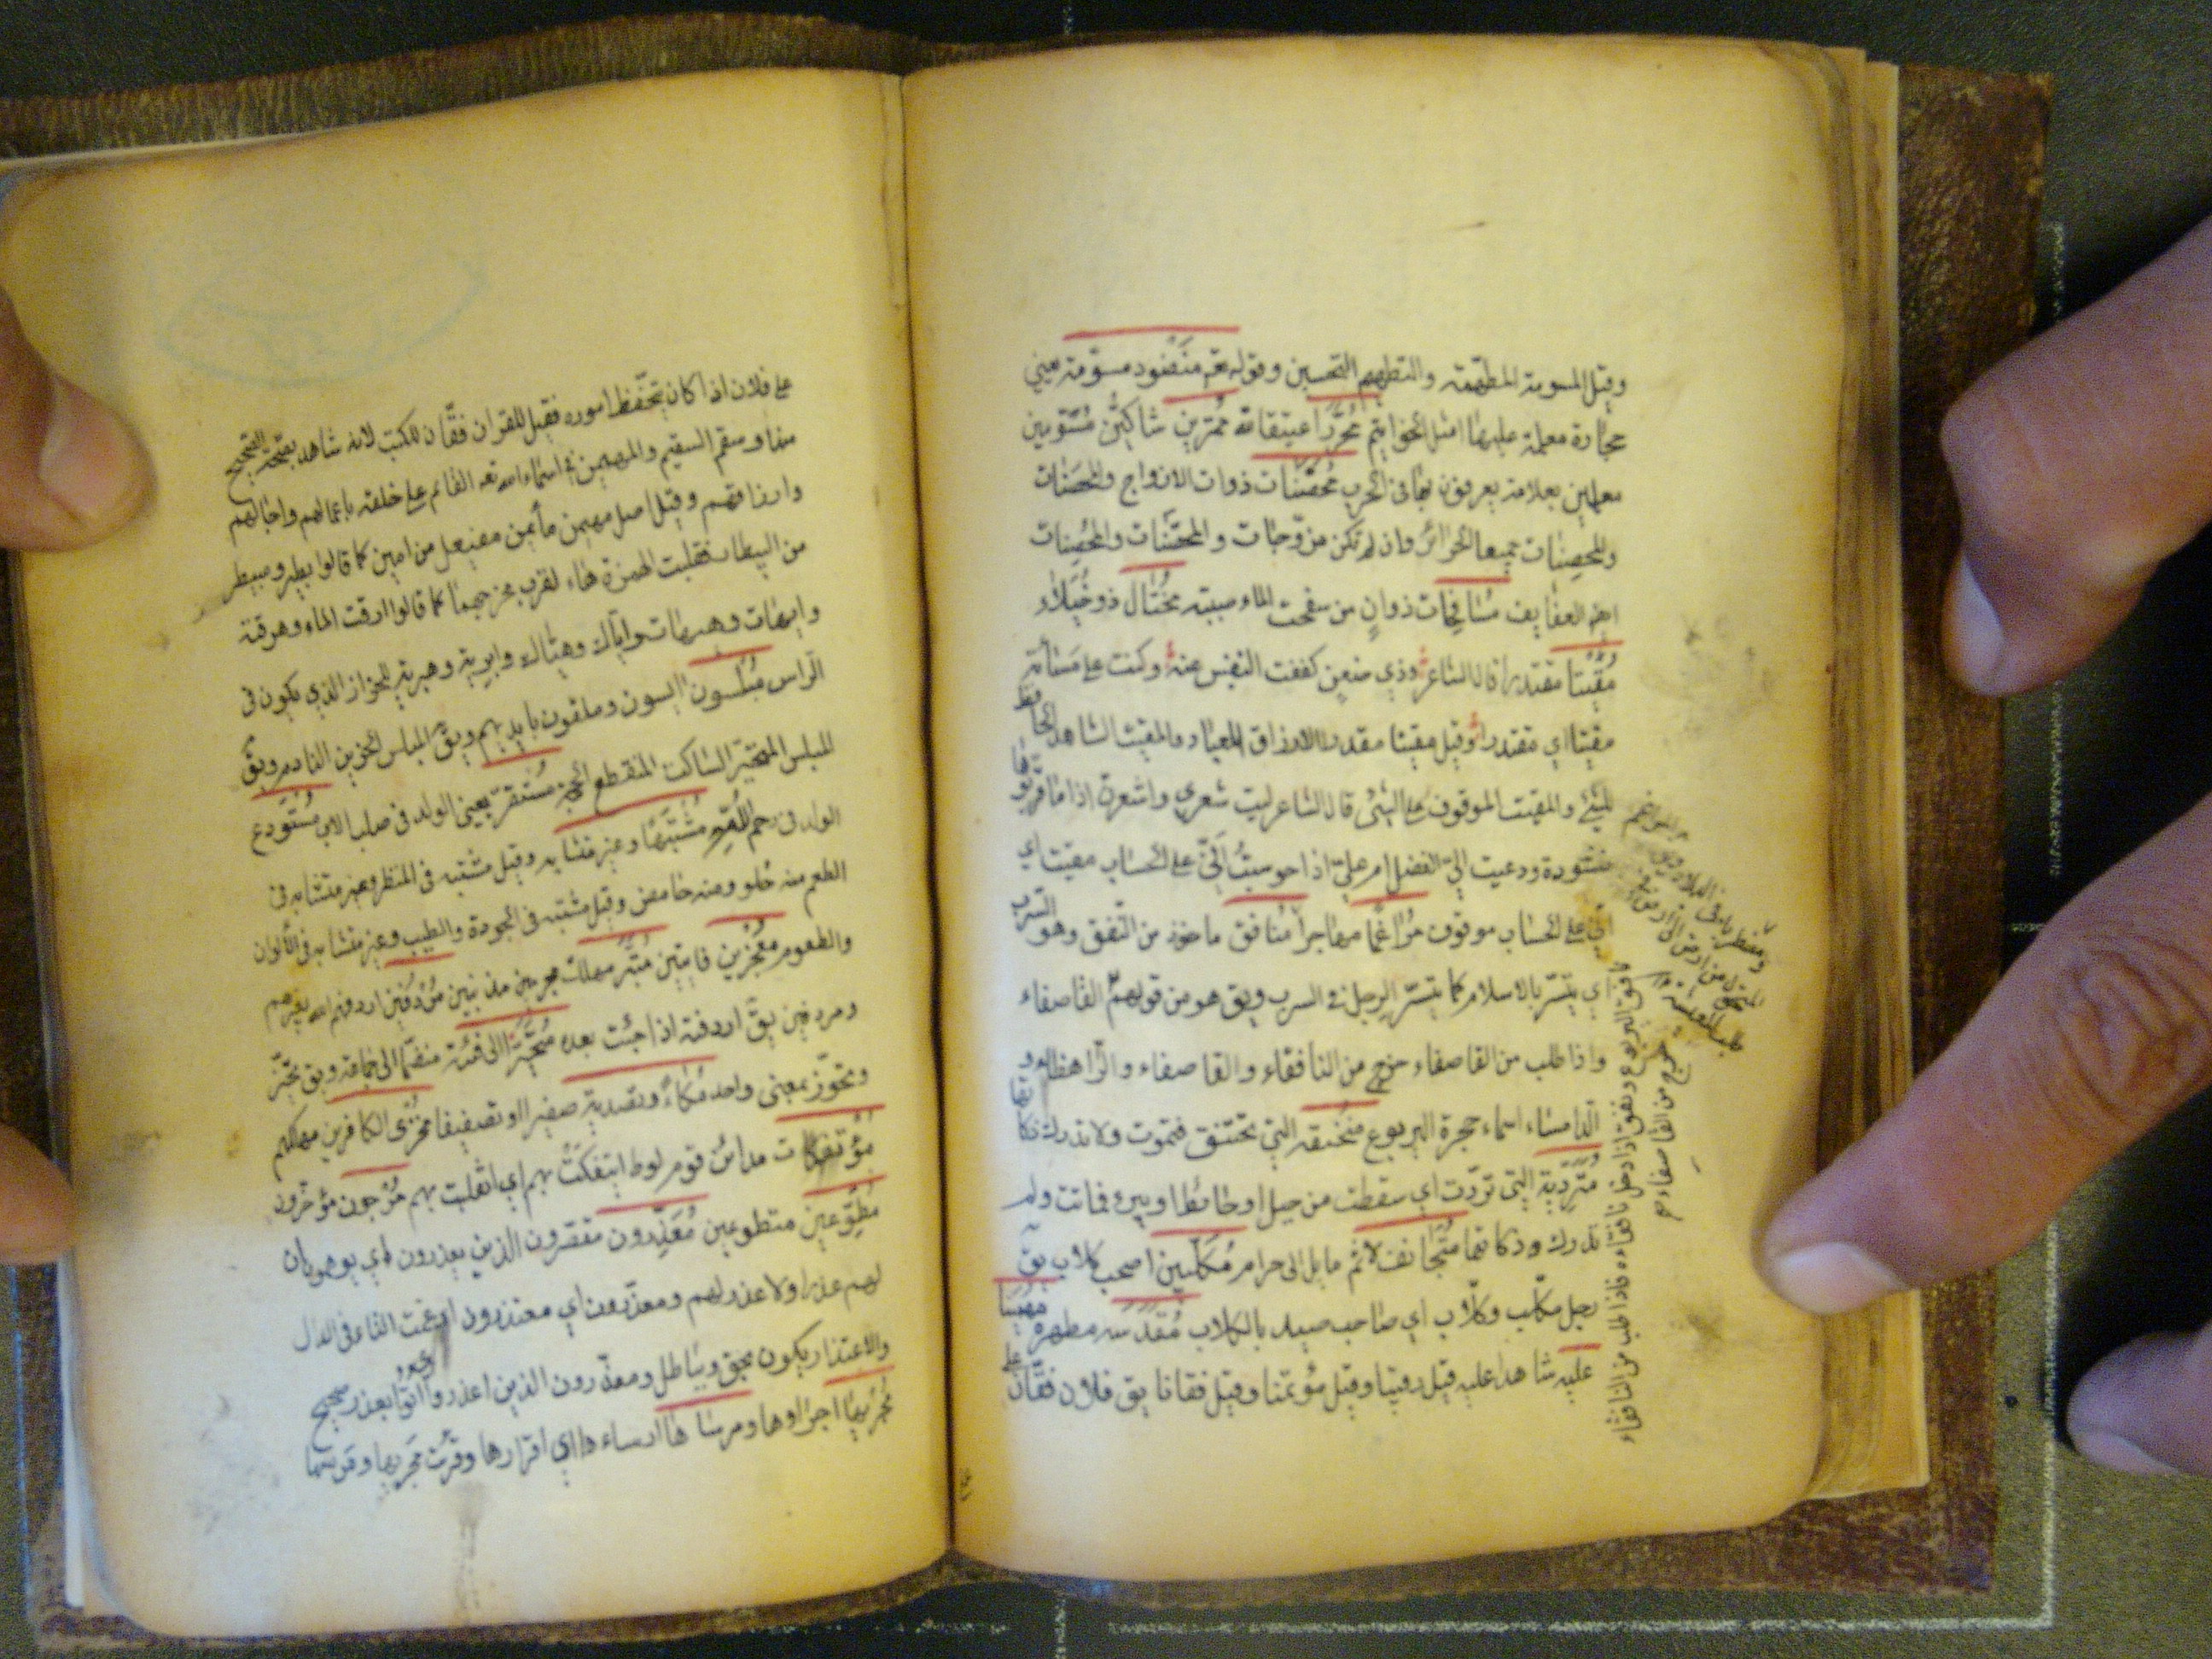 وقيل المسومة المطهمة والتطهيم التحسين وقوله تعه منضود مسومة يعني
حجارة معلمة عليها امثل الخواتيم محررا عتيقا لله ممترين شاكين مسومين
معلمين بعلامة يعرفون بها في الحرب محصنات ذوات الازواج والمحصنات
والمحصنات جميعا الحرائر وان لم تكن مزوجات والمحصنات والمحصنات
ايضا العفايف مسافحات زوان من سفحت الماء صببته مختال ذو خيلاء
مقيتا مقتدرا قال الشاعر وذي ضغن كففت النفس عنه وكنت على مساءته
مقيتا اي مقتدرا وقيل مقيتا مقدرا لاوزاق العباد والمقيت الشاهد الحافظ
للشئ والمقيت الموقوف على الشئ قال الشاعر ليت شعري واشعرن اذا ما قربوها
منشورة ودعيت الي الفضل ام علي اذا حوسبت اني على الحساب مقيت اي
اني على الحساب موقوف مراغما مهاجرا منافق ماخوذ من النفق وهو السرب
اي يتستر بالاسلام كما يتستر الرجل في السرب ويق هو من قولهم القاصعاء
واذا طلب من القاصفاء خرج من النافقاء والقاصفاء والراهطاء و
الدامساء اسماء حجرة اليربوع منخنقه التي تختنق فتموت ولا تدرك ذكاتها
متردية التي تردت اي سقطت من جبل او حائط او بير فماتت ولم
تدرك وذكاتها متجانف لاثم مايل الى حرام مكلبين اصحب كلاب يق
رجل مكلب وكلاب اي صاحب صيد بالكلاب مقدسه مطهرة مهيمنا
عليه شاهدا عليه قيل رقيبا وقيل مؤتمنا وقيل قفانا يق فلان قفان على
على فلان اذا كان يتحفظ اموره فقيل للقران قفان للكتب لانه شاهد بصحة الصحيح
منها وسقم السقيم والمهيمن في اسماء الله تعه القائم على خلقه باعمالهم واجالهم
وارزاقهم وقيل اصل مهيمن مأيمن مفيعل من امين كما قالوا بيطر ومبيطر
من البيطار فقلبت الهمزة هاء لقرب مخرجهما كما قالوا ارقت الماء وهرقته
وايهات وهيهات واياك وهياك وابرية وهبرية للحزاز الذي يكون في
الراس مبلسون ايسون وملقون بايديهم ويق المبلس الحزين النادم ويق
المبلس المتحير الساكت المنقطع الحجة مستقر يعني الولد في صلب الاب مستودع
الولد في رحم الام مشتبها وغير متشابه وقيل مشتبه في المنظر وغير متشابه في
الطعم منه حلو ومنه حامض وقيل مشتبه في الجودة والطيب وغير متشابه في الألوان
والطعوم معجزين فايتين متبر مهلك مجرمين مذنبين مردفين اردفهم الله بغيرهم
ومردفين يق اردفته اذا جئت بعده متحيزا الى فئة منضما الى جماعة ويق تحيز
وتحوز بمعنى واحد مكاء وتصدية صفيرا وتصفيقا مخزى الكافرين مهلكهم
مؤتفكات مدائن قوم لوط ايتفكت بهم اي انقلبت بهم مرجون مؤخرون
مطوعين متطوعين معذرون مقصرون الذين يعذرون اي يوهمون ان
لهم عذرا ولا عذر لهم ومعذرون اي معتذرون ادغمت التاء في الذال
والاعتذار يكون بحق وبباطل ومعذرون الذين اعذروا اي اتوا بعذر صحيح
مجريها اجراوها ومرساها ارساءها اي اقرارها وقرئت مجريها ومرسها